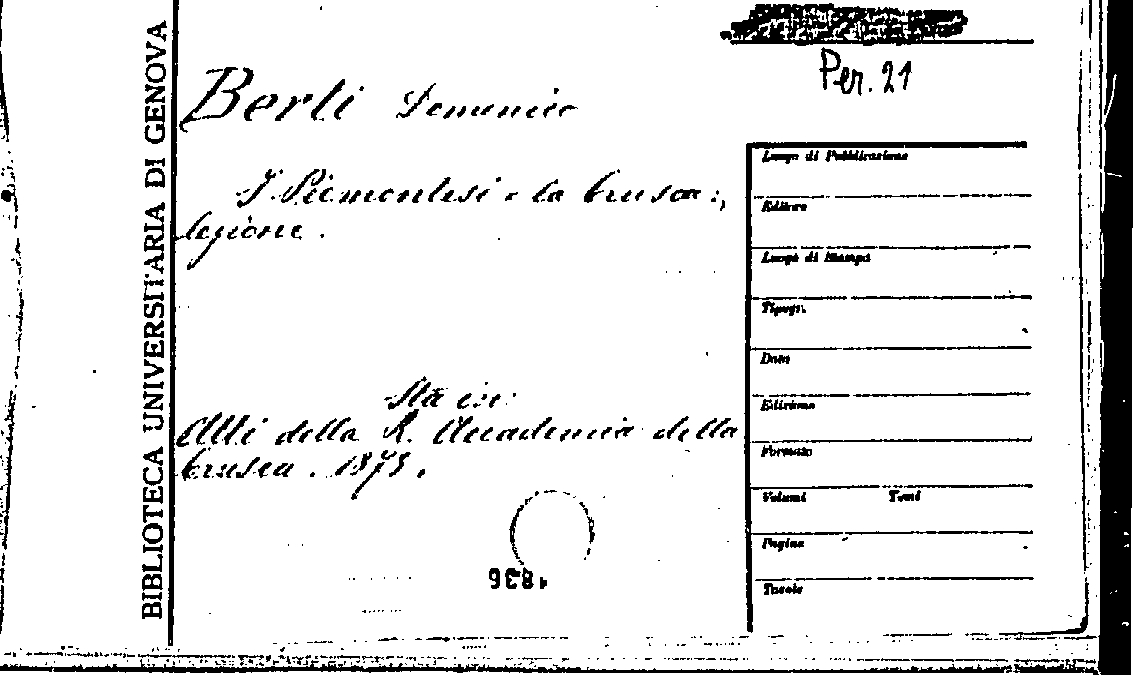 BIBLIOTECA UNIVERSITARIA DI GENOVA
Per. 21
Berti Domenico
I Piemontesi e la Crusca:,
lezione.
Sta in:
Atti della R. Accademia della
Crusca. 1873.
1836
Luogo di Pubblicazione
Editore
Luogo di Stampa
Tipogr.
Data
Edizione
Formato
Volumi Tomi
Pagine
Tavole